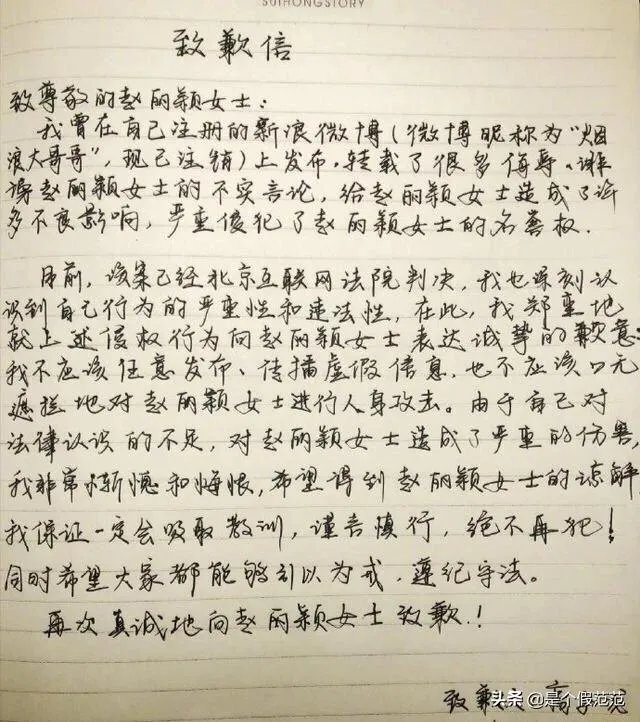 SUIHONGSTORY
致歉信
致尊敬的赵丽颖女士：
我曾在自己注册的新浪微博（微博昵称为“烟
浪大哥哥”，现已注销）上发布、转载了很多侮辱、诽
谤赵丽颖女士的不实言论，给赵丽颖女士造成了许
多不良影响，严重侵犯了赵丽颖女士的名誉权．
目前，该案已经北京互联网法院判决，我也深刻认
识到自己行为的严重性和违法性，在此，我郑重地
就上述侵权行为向赵丽颖女士表达诚挚的歉意：
我不应该任意发布、传播虚假信息，也不应该口无
遮拦地对赵丽颖女士进行人身攻击。由于自己对
法律认识的不足，对赵丽颖女士造成了严重的伤害，
我非常惭愧和悔恨，希望得到赵丽颖女士的谅解
我保证一定会吸取教训，谨言慎行，绝不再犯！
同时希望大家都能够引以为戒，遵纪守法。
再次真诚地向赵丽颖女士致歉！
致歉
头条 @是个假范范